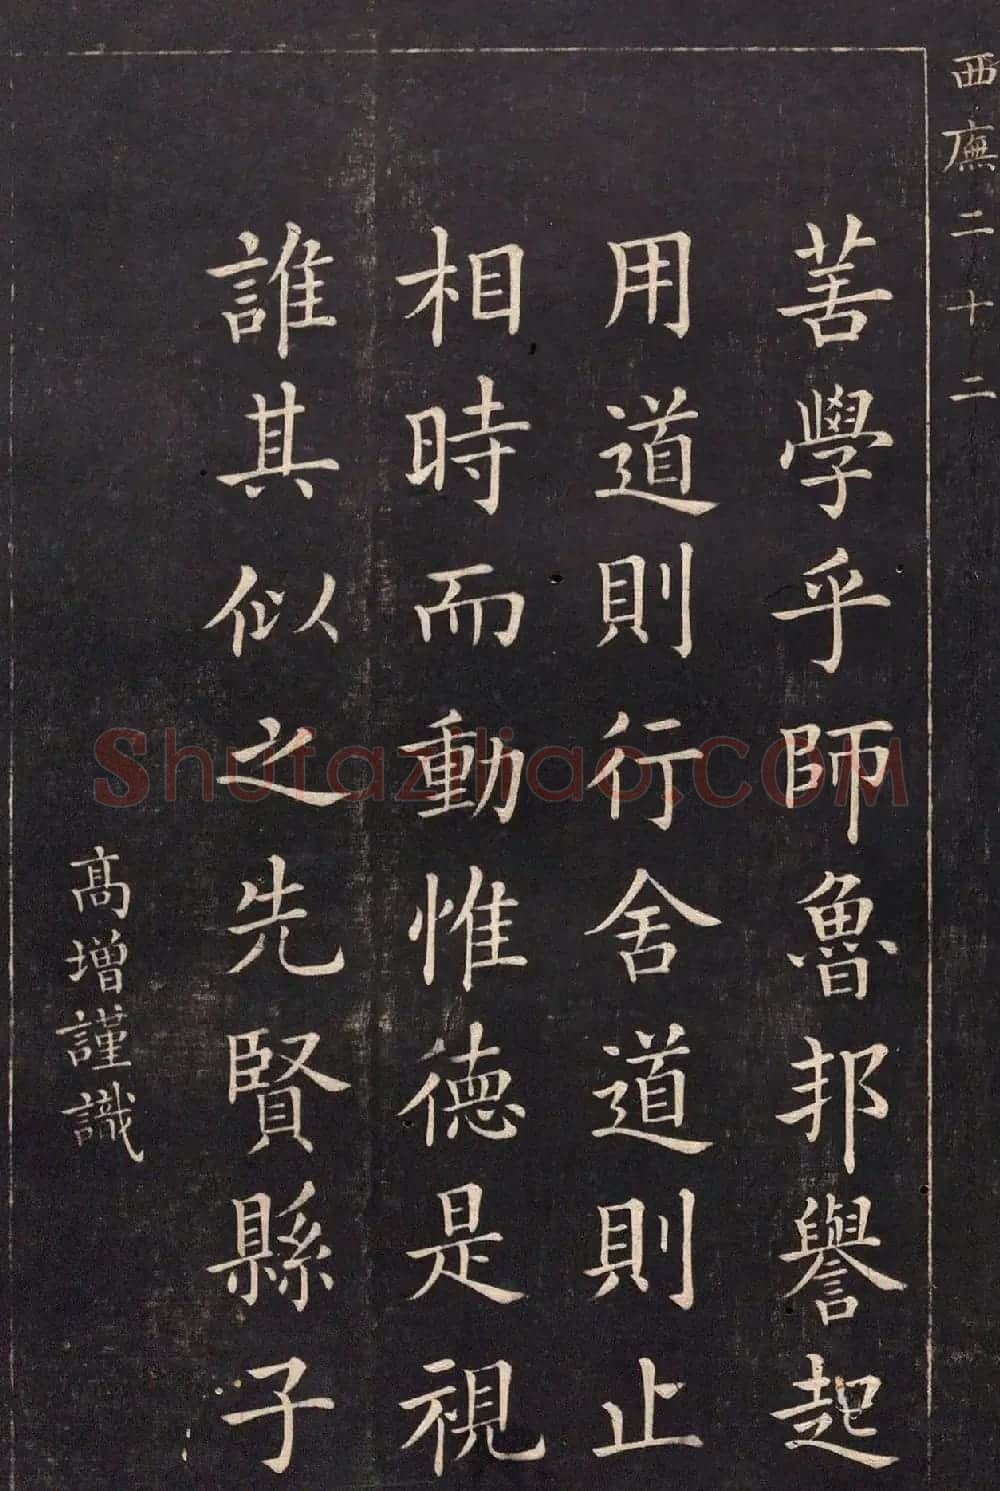 西廡二十二
善學乎師魯邦譽起
用道則行舍道則止
相時而動惟德是視
誰其似之先賢縣子
高增謹識
Shufaziliao.COM